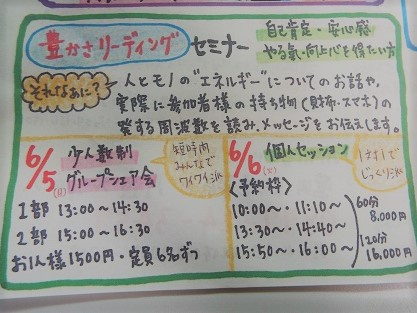 豊かさリーディング セミナー
自己肯定・安心感
やる氣・向上心を得たい方
それなぁに?
人とモノの"エネルギー"についてのお話や、
実際に参加者様の持ち物(財布・スマホ)の
発する周波数を読み、メッセージをお伝えします。
6/5(月) 少人数制
グループシェア会
短時間
みんなで
ワイワイ派
1部 13:00~14:30
2部 15:00~16:30
お1人様1500円・定員6名ずつ
6/6(火) 個人セッション
1対1で
じっくり派
〈予約枠〉
10:00~・11:10~
13:30~・14:40~
15:50~・16:00~
60分
8,000円
120分
16,000円